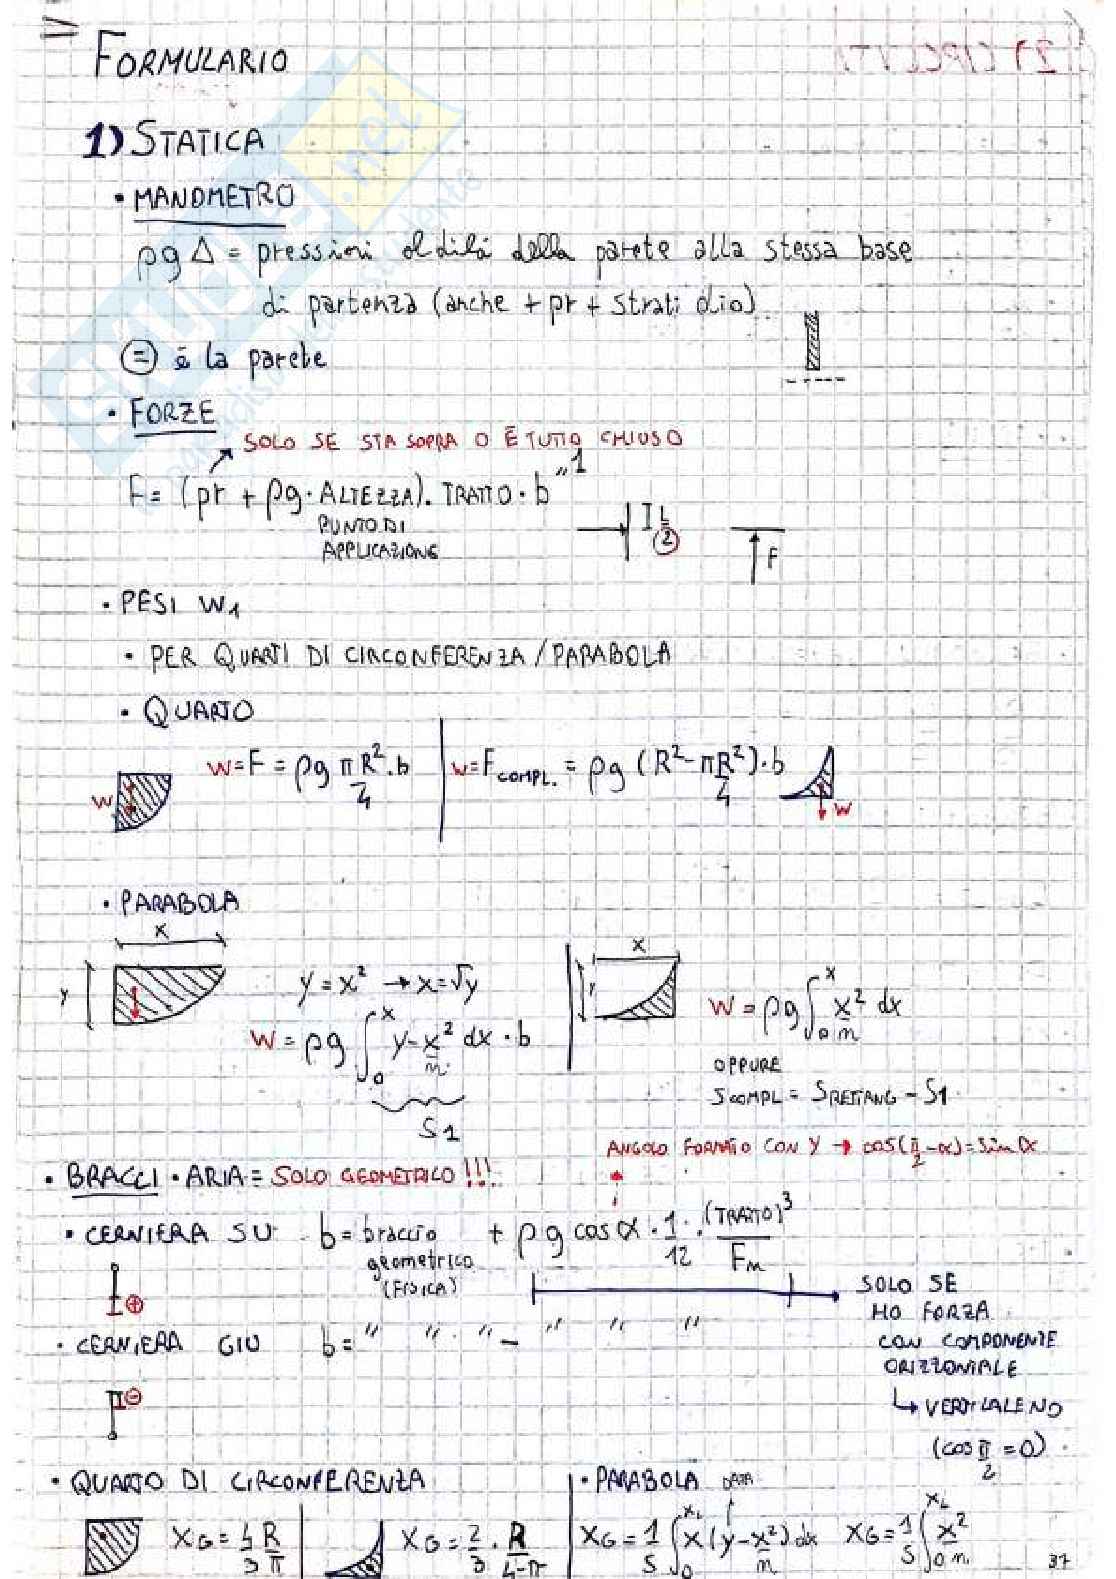 FORMULARIO
1) STATICA
• MANOMETRO
ρg Δ = pressioni al di là della parete alla stessa base
di partenza (anche + pr + strati olio)
(=) è la parete
• FORZE
SOLO SE STA SOPRA O È TUTTO CHIUSO
F = (pr + ρg · ALTEZZA) · TRATTO · b "1
PUNTO DI
APPLICAZIONE
L/2
F
• PESI W1
• PER QUARTI DI CIRCONFERENZA / PARABOLA
• QUARTO
W W = F = ρg πR²/4 · b | W = F COMPL. = ρg (R² - πR²/4) · b W
• PARABOLA
X X
Y y = x² → x = √y Y
W = ρg ∫₀ˣ y - x²/m dx · b | W = ρg ∫₀ˣ x²/m dx
S1
OPPURE
S COMPL = S RETTANG - S1
ANGOLO FORMATO CON Y → cos(π/2 - α) = sin α
• BRACCI • ARIA = SOLO GEOMETRICO !!!
• CERNIERA SU b = braccio + ρg cos α · 1/12 · (TRATTO)³/Fm
geometrico
(FISICA)
⊕
SOLO SE
HO FORZA
CON COMPONENTE
ORIZZONTALE
↳ VERTICALE NO
(cos π/2 = 0)
• CERNIERA GIÙ b = " " " - " " "
⊖
• QUARTO DI CIRCONFERENZA | • PARABOLA
XG = 4/3 R/π | XG = 2/3 · R/4-π | XG = 1/S ∫₀^XL x (y - x²/m) dx XG = 1/S ∫₀^XL x²/m
37